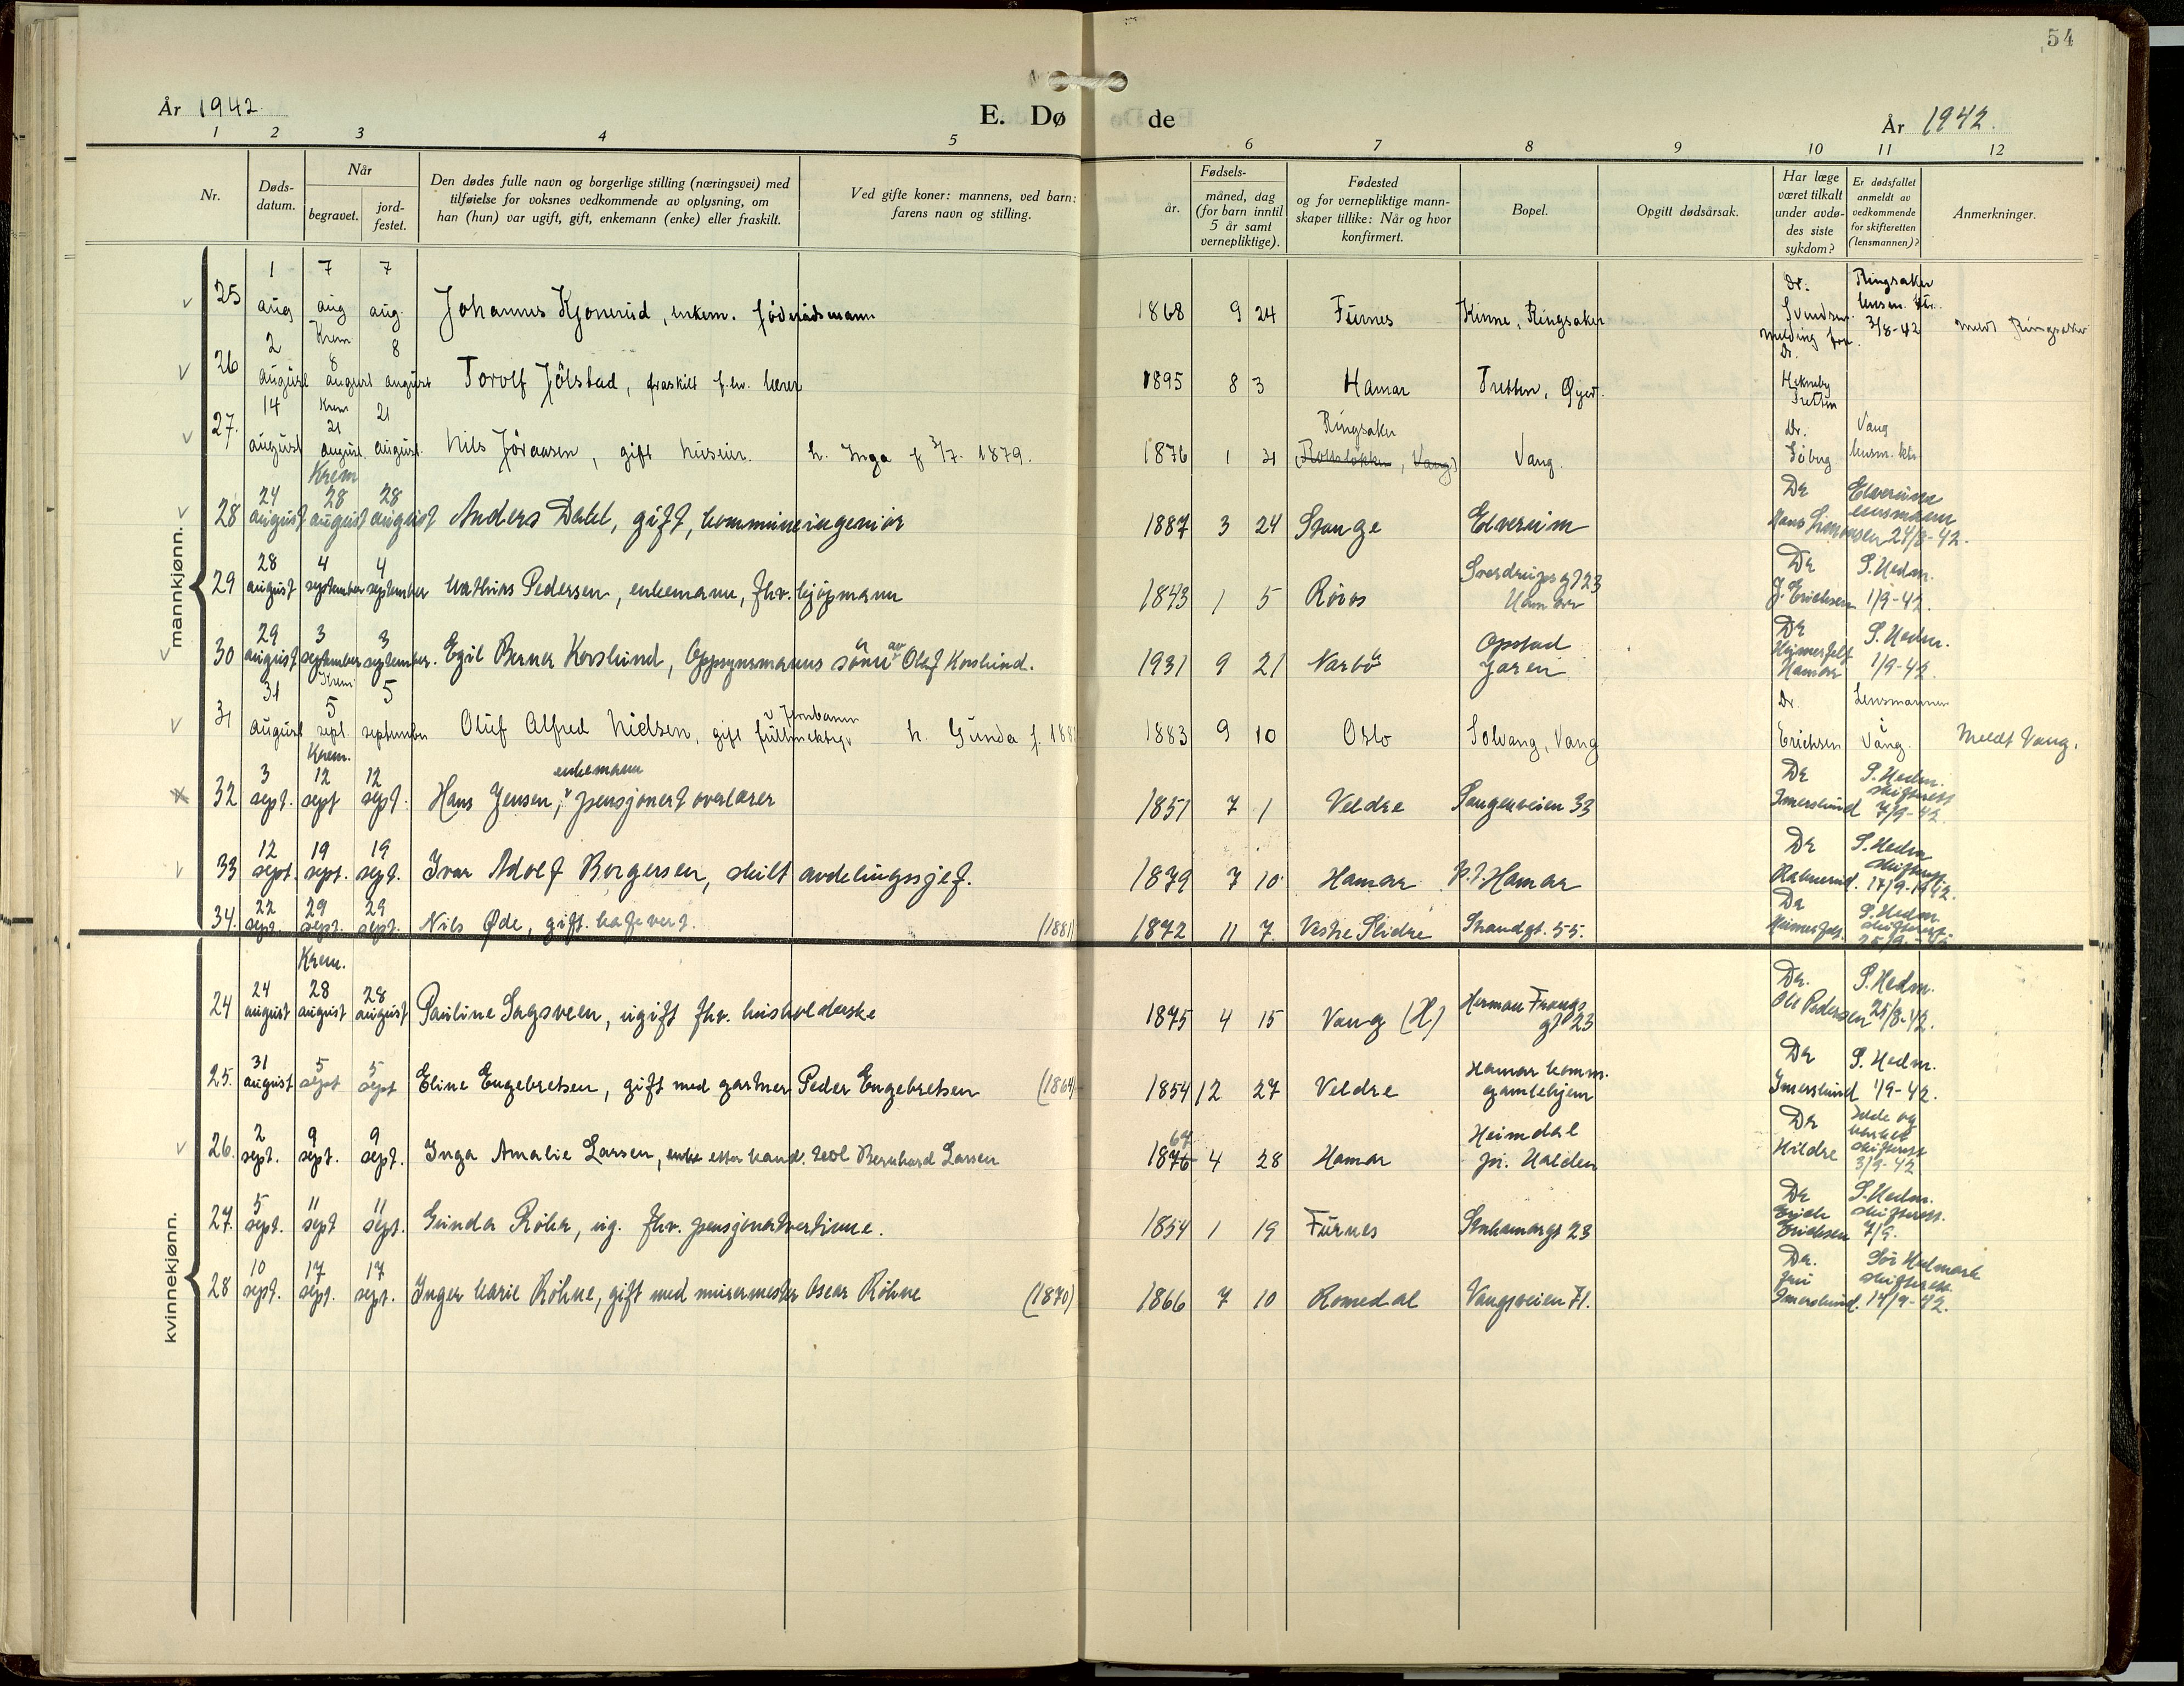 54
År 1942.
E. Dø de
År 1942.
1 2 3 4 5 6 7 8 9 10 11 12
Nr.
Døds-
datum.
Når
begravet.
jord-
festet.
Den dødes fulle navn og borgerlige stilling (næringsvei) med
tilføielse for voksnes vedkommende av oplysning, om
han (hun) var ugift, gift, enkemann (enke) eller fraskilt.
Ved gifte koner: mannens, ved barn:
farens navn og stilling.
Fødsels-
år.
måned, dag
(for barn inntil
5 år samt
vernepliktige).
Fødested
og for vernepliktige mann-
skaper tillike: Når og hvor
konfirmert.
Bopel.
Opgitt dødsårsak.
Har læge
været tilkalt
under avdø-
des siste
sykdom?
Er dødsfallet
anmeldt av
vedkommende
for skifteretten
(lensmannen)?
Anmerkninger.
mannkjønn.
1 7 7 Dr. Ringsaker
25 aug aug aug. Johannes Kjonerud, enkem. föderådsmann 1868 9 24 Furnes Kinne, Ringsaker Svendsen 3/8-42 meldt Ringsaker
2 Krem 8 8 melding fra Dr.
26 august august august Torolf Jölstad, fraskilt f.hv. lærer 1895 8 3 Hamar Tretten, Øyer. Tretten
14 Krem 21 21 Ringsaker Dr. Vang
27. august august august. Nils Jöraasen, gift h. Inga f 3/7. 1879. 1876 1 31 Vang) Vang. lensm. ktr
Krem
24 28 28 Dr Elverum
28 august august august Anders Dæhl, gift, kommuneingeniör 1887 3 24 Stange Elverum lensmann
Hans Simonsen 24/8-42.
28 4 4 Sverdrups gt 23 Dr S. Hedm.
29 august september september Mathias Pedersen, enkemann, fhv. kjöpmann 1843 1 5 Röros Hamar J. Erichsen 1/9-42.
29 3 3 Opstad Dr S. Hedm.
30 august september september. Egil Berner Korslund, Oppsynsmanns sönn av Olaf Korslund. 1931 9 21 Narbö Jæren Heimerfelt Hamar 1/9-42.
31 Krem 5 5 v Jernbanen Dr. Lensmannen
31 august sept. september Oluf Alfred Nielsen, gift fullmektig h. Gunda f. 188 1883 9 10 Oslo Solvang, Vang Erichsen i Vang. Meldt Vang.
Krem.
3 12 12 enkemann Dr S. Hedm.
32 sept. sept sept. Hans Jensen, pensjonert overlærer 1851 7 1 Veldre Sangenveien 33 Imerslund skifterett 7/9-42.
12 19 19 Dr S. Hedm
33 sept. sept. sept. Ivar Adolf Borgersen, skilt avdelingssjef. 1879 7 10 Hamar p.t. Hamar skifterett 17/9-1942.
22 29 29 Dr S. Hedm.
34. sept. sept. sept. Nils Øde, gift. kafevert. (1881) 1872 11 7. Vestre Slidre Strandgt. 55. Heimerfelt. skifterett.
kvinnekjønn.
Krem.
24 28 28 Dr. S. Hedm.
24 august august august Pauline Sagsveen, ugift fhv. husholderske 1875 4 15 Vang (H) Herman Frangs gt 23 Ole Pedersen 25/8-42.
31 5 5 Hamar komm. Dr S. Hedm.
25. august sept sept Eline Engebretsen, gift med gartner Peder Engebretsen (1864) 1854 12 27 Veldre gamlehjem Imerslund 1/9-42.
2 9 9 67 Heimdal Dr Idde og Marker
26. sept. sept. sept. Inga Amalie Larsen, enke etter cand. teol Bernhard Larsen 1876 4 28 Hamar pr. Halden Hildre skifterett 3/9-42
5 11 11 Dr S. Hedm.
27. sept. sept sept. Gunda Röhr, ug. fhv. pensjonatvertinne. 1854 1 19 Furnes Stenhamargt 23 Erik Erichsen skifterett. 7/9.
10 17 17 Dr. Sör Hedmark
28 sept. sept. sept. Inger Marie Röhne, gift med murermester Oscar Röhne (1870) 1866 7 10 Romedal Vangsveien 71. Imerslund. skifterett 14/9-42.